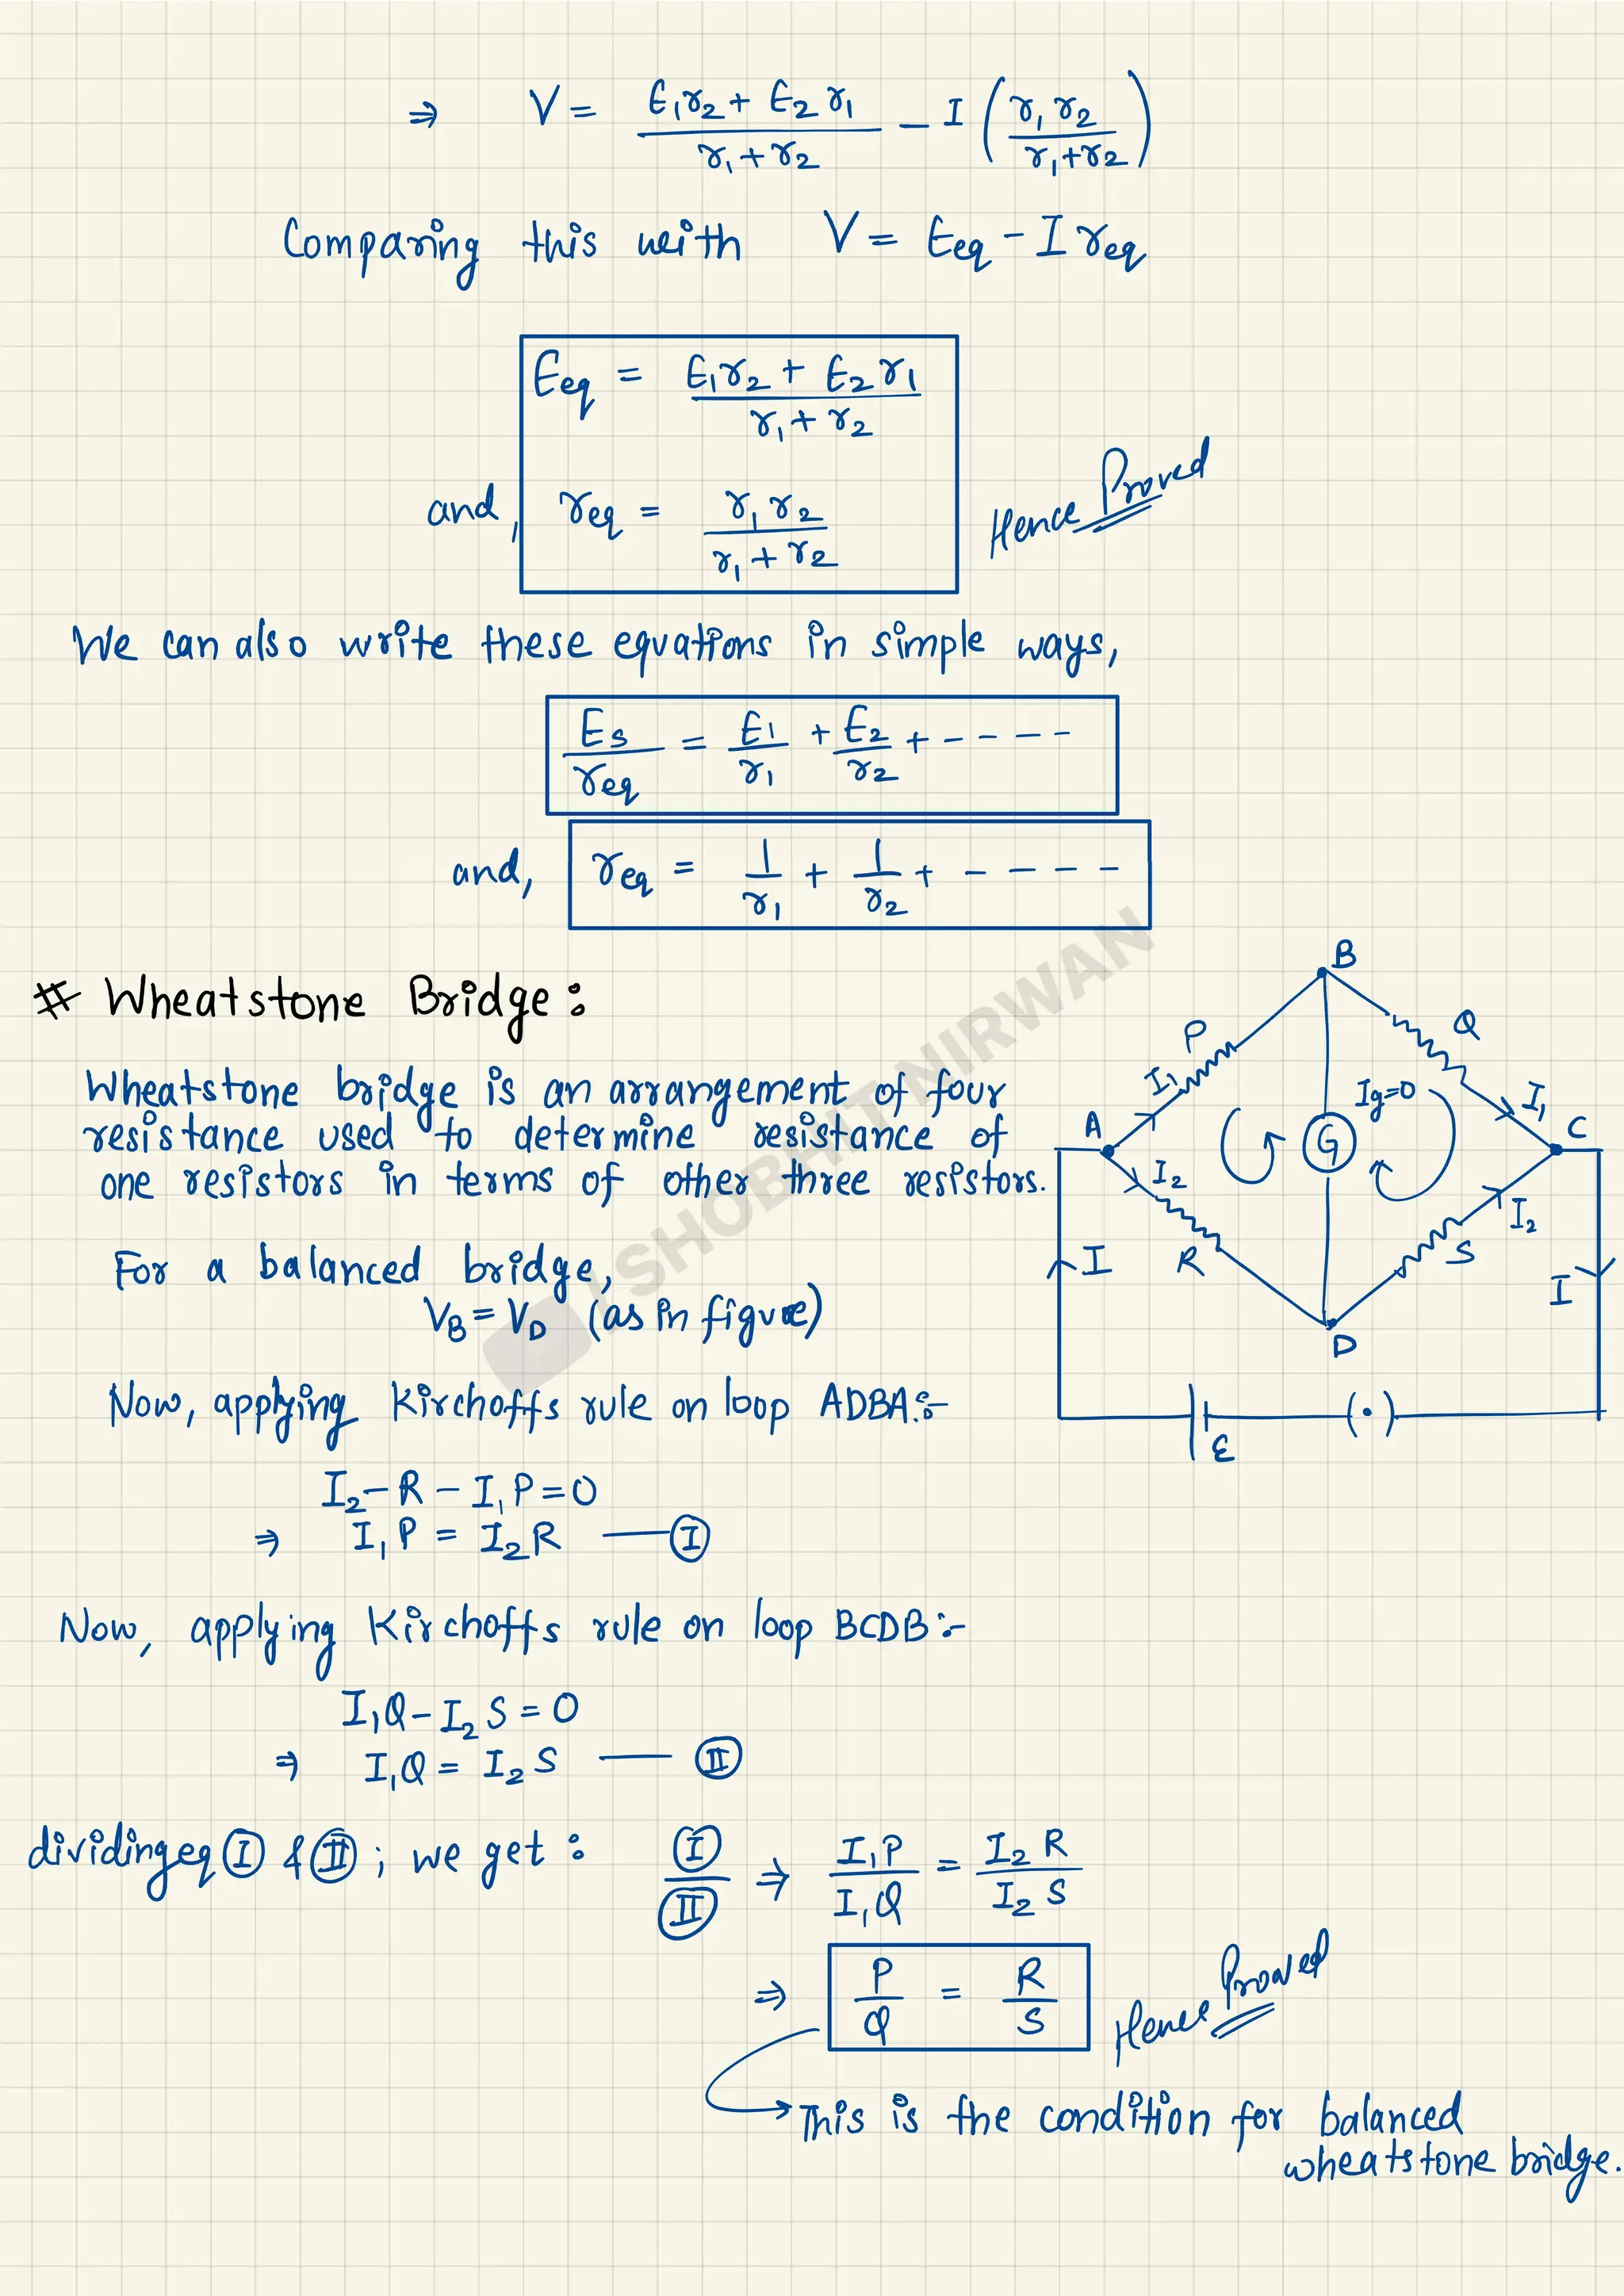 ⇒ V = (E₁r₂ + E₂r₁)/(r₁ + r₂) – I (r₁r₂/(r₁+r₂))
Comparing this with V = Eeq - I req
Eeq = (E₁r₂ + E₂r₁)/(r₁ + r₂)
and, req = r₁r₂/(r₁ + r₂)
Hence Proved
We can also write these equations in simple ways,
Es/req = E₁/r₁ + E₂/r₂ + - - - -
and, req = 1/r₁ + 1/r₂ + - - - - -
# Wheatstone Bridge:
Wheatstone bridge is an arrangement of four
resistance used to determine resistance of
one resistors in terms of other three resistors.
For a balanced bridge,
VB = VD (as in figure)
B
P
Q
I₁
Ig=0
I₁
A
G
C
I₂
I₂
R
S
I
I
D
ε
(•)
/ SHOBHIT NIRWAN
Now, applying Kirchoffs rule on loop ADBA:-
I₂- R - I₁P = 0
⇒ I₁P = I₂R — (I)
Now, applying Kirchoffs rule on loop BCDB:-
I₁Q - I₂S = 0
⇒ I₁Q = I₂S — (II)
dividing eq (I) & (II); we get: (I)/(II) ⇒ I₁P/I₁Q = I₂R/I₂S
⇒ P/Q = R/S
Hence Proved
This is the condition for balanced
wheatstone bridge.